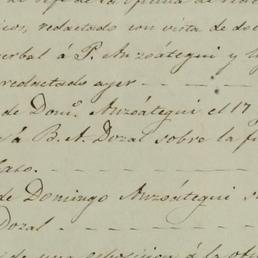 redactado con vista de
verbal á P. Anzoátegui y
redactado ayer
de Dom.º Anzoátegui el 17
á B. A. Dozal sobre la
de Domingo Anzoátegui
Dozal
de una esposicion á la